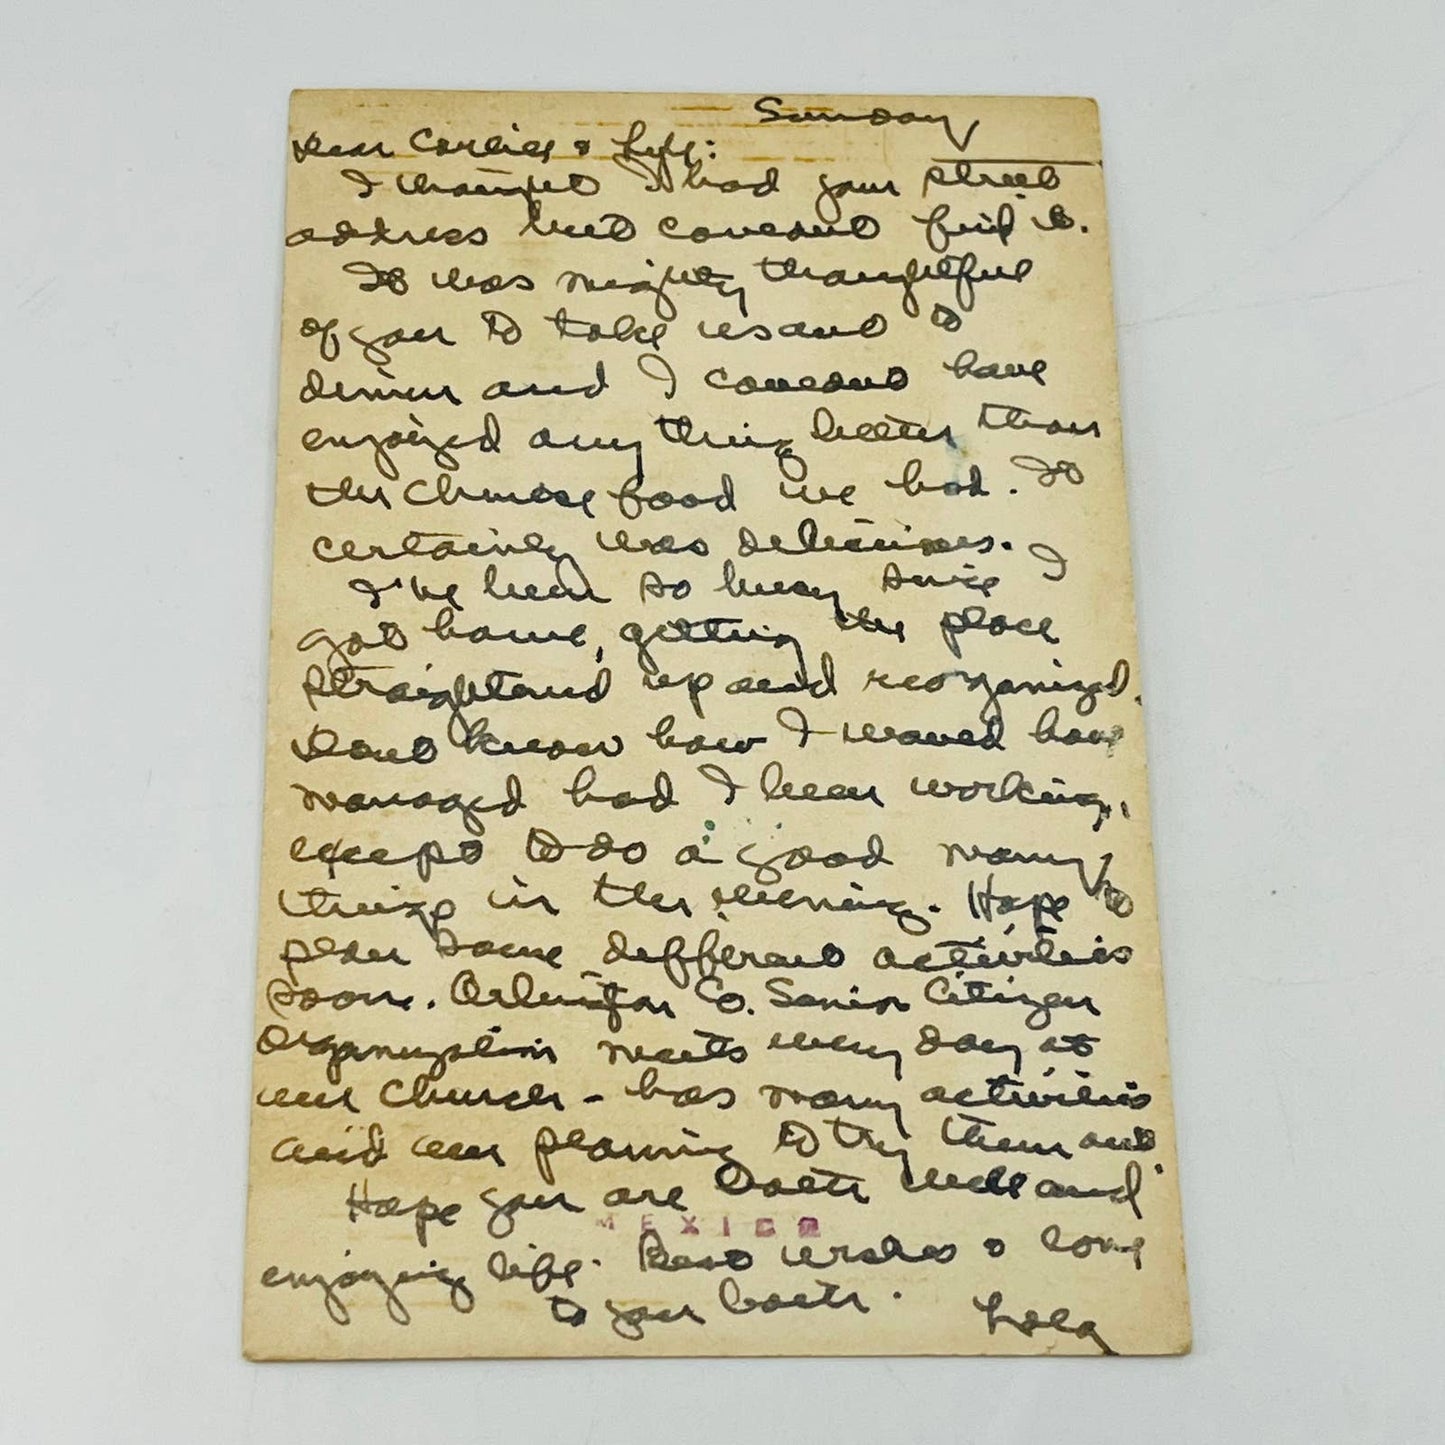 Sunday
Dear Corlies & Lyle:
I thought I had your street
address but couldnt find it.
It was mighty thoughtful
of you to take us out to
dinner and I couldnt have
enjoyed any thing better than
the Chinese food we had. It
certainly was delicious.
I've been so busy since I
got home, getting the place
straightened up and reorganized.
Dont know how I would have
managed had I been working,
except to do a good many
things in the evening. Hope to
plan some different activities
soon. Arlington Co. Senior Citizen
Organization meets every day at
our Church - has many activities
and am planning to try them out
Hope you are both well and
MEXICO
enjoying life. Best wishes & love
to you both.
Lola